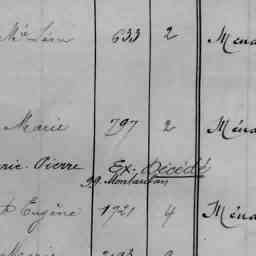 Mie Léon 633 2 Ména
Marie 797 2 Ména
rie-Pierre Ex. Décédé
99. Montauban
Eugène 1721 4 Ména